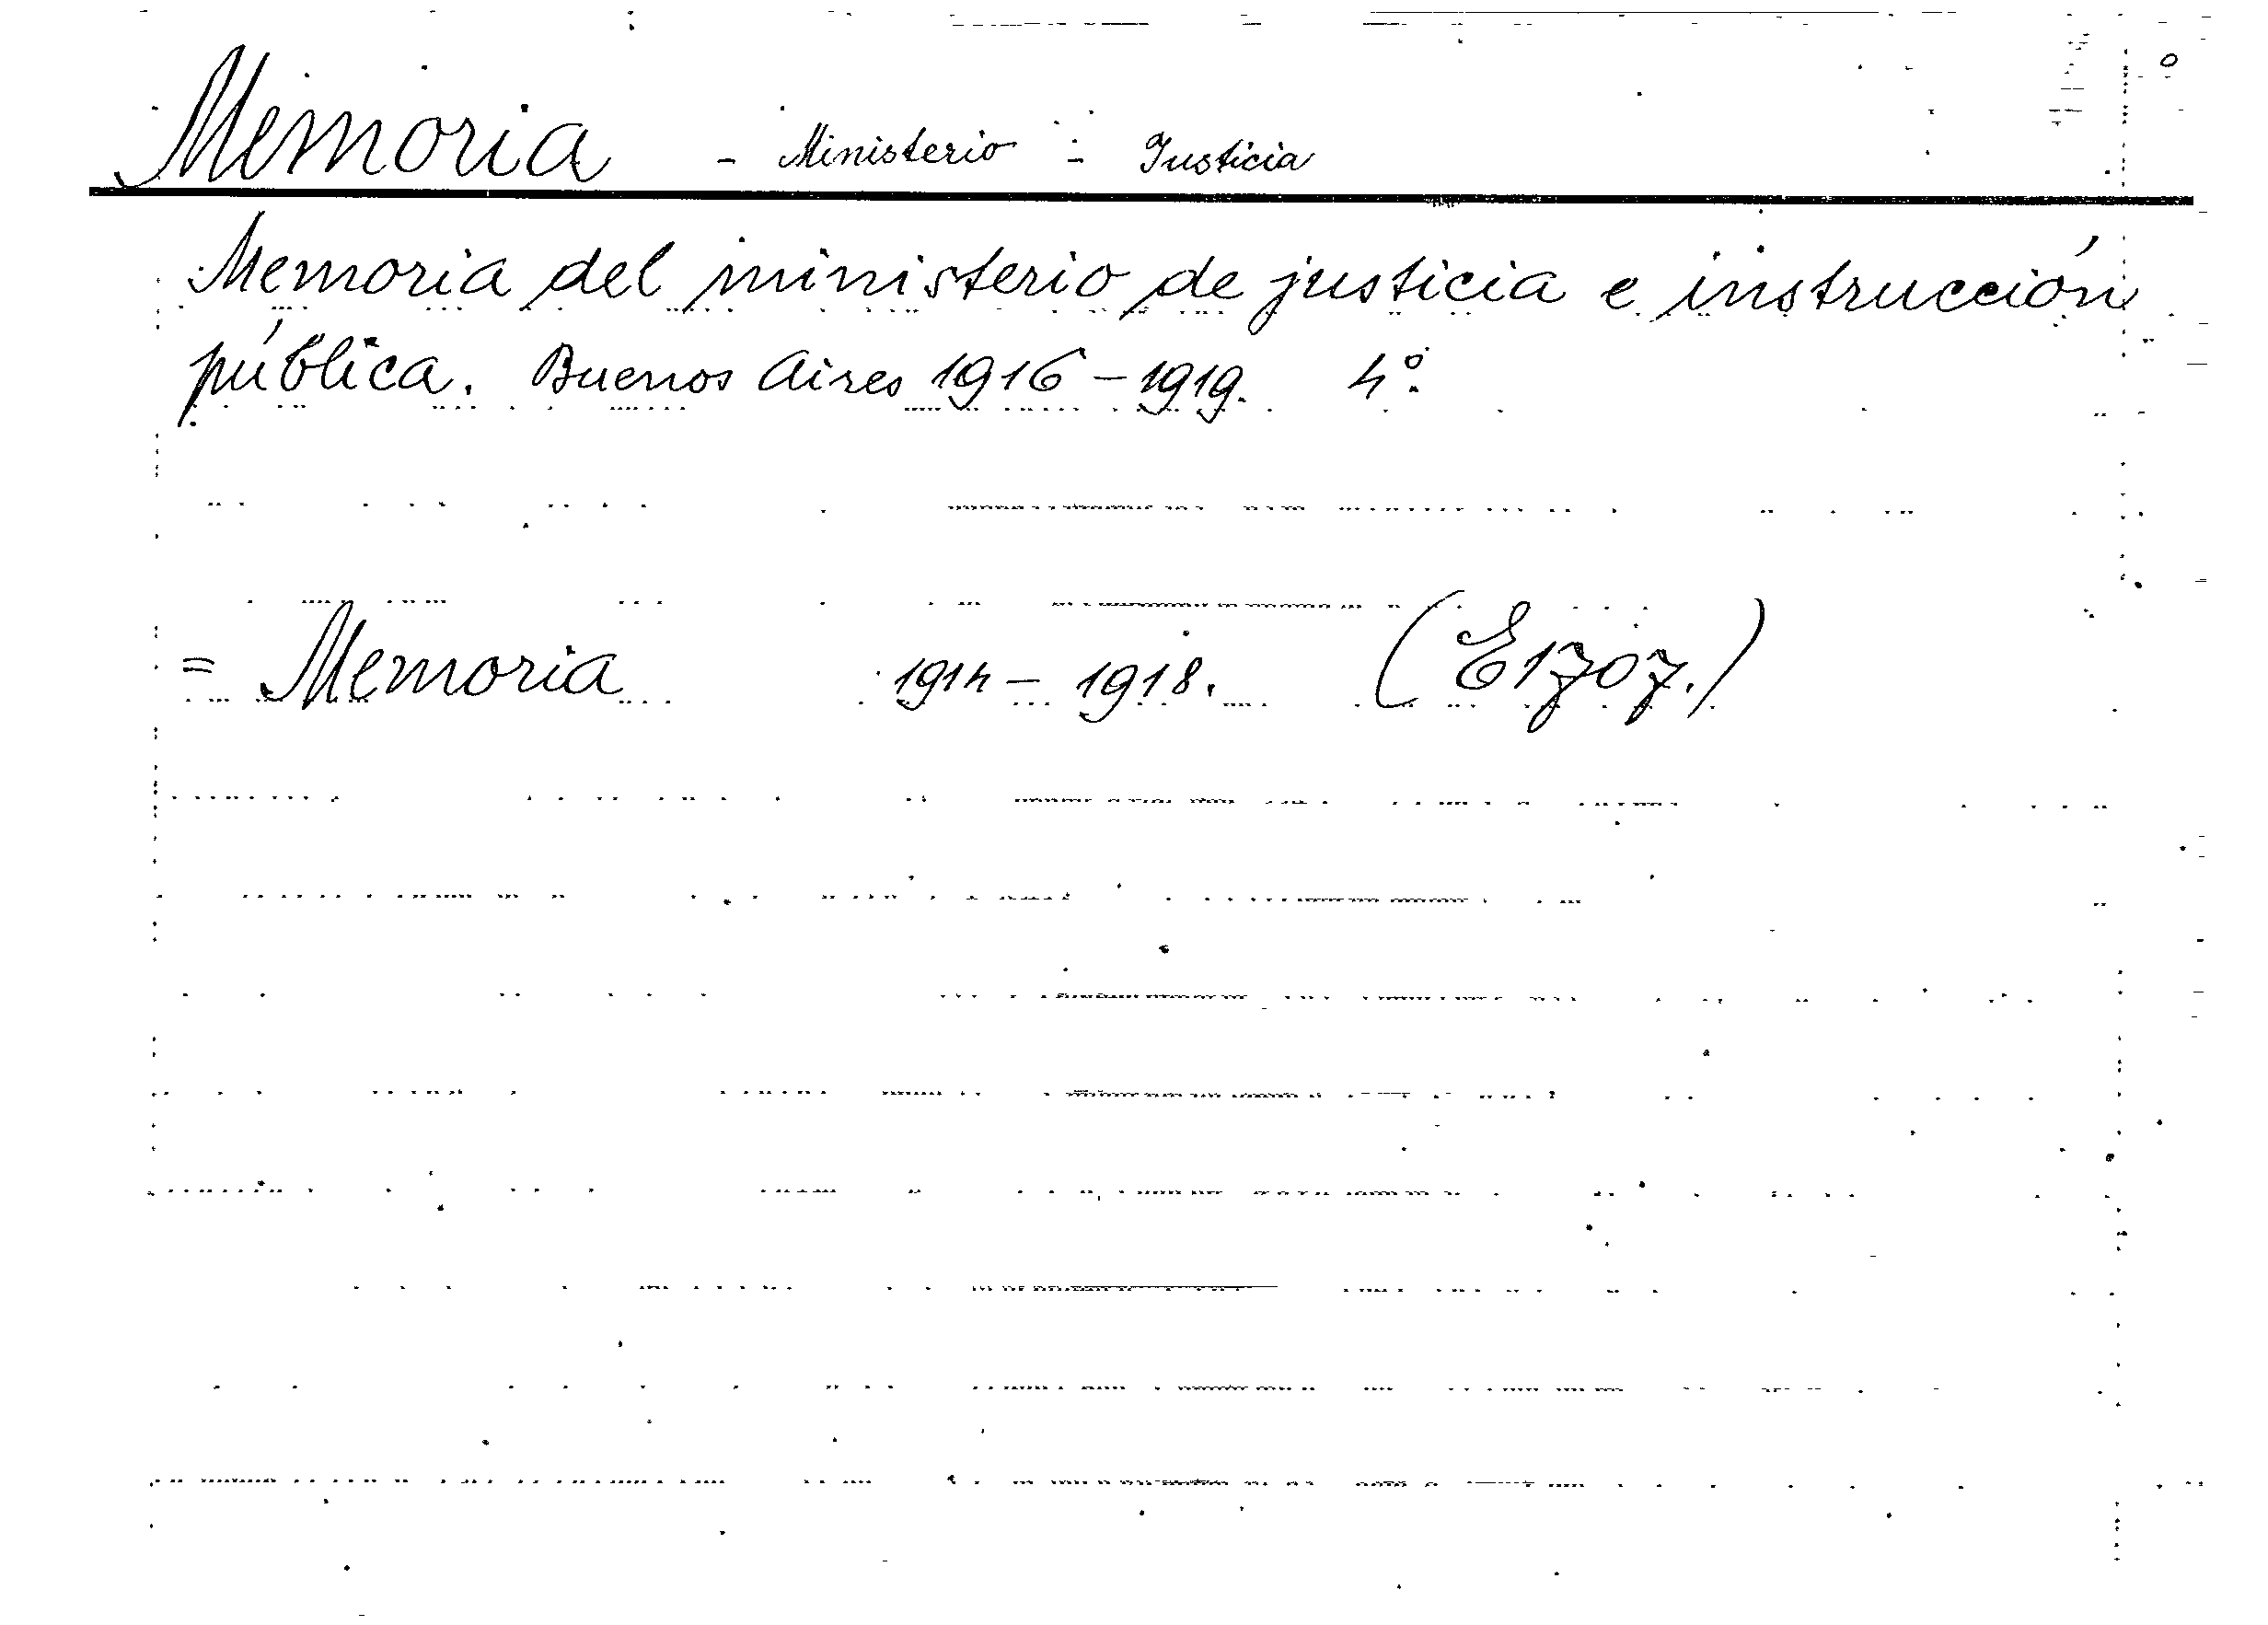 Memoria - Ministerio - Justicia
Memoria del ministerio de justicia e instrucción
pública. Buenos Aires 1916-1919. 4º
= Memoria 1914-1918. (E1707.)